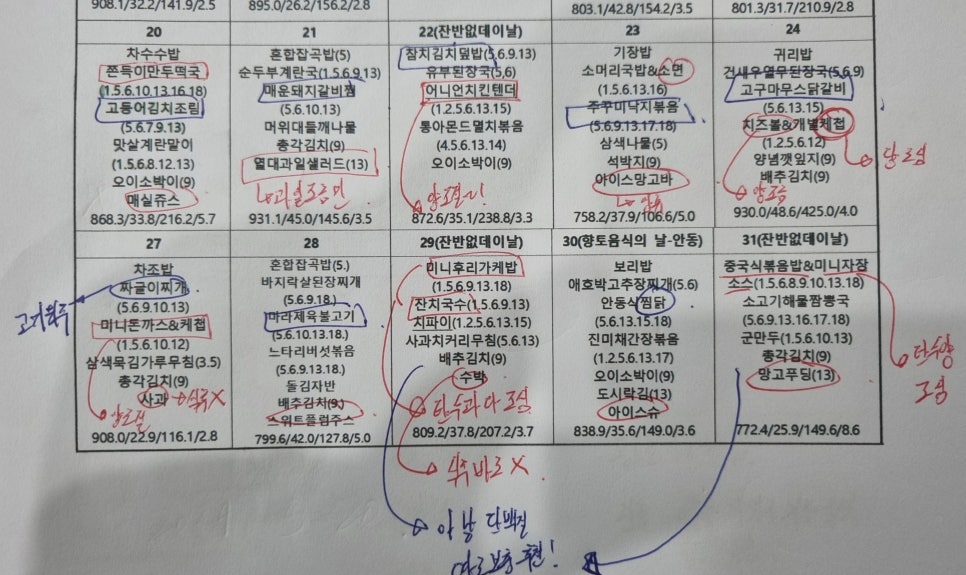 908.1/32.2/141.9/2.5
895.0/26.2/156.2/2.8
803.1/42.8/154.2/3.5
801.3/31.7/210.9/2.8
20
차수수밥
쫀득이만두떡국
(1.5.6.10.13.16.18)
고등어김치조림
(5.6.7.9.13)
맛살계란말이
(1.5.6.8.12.13)
오이소박이(9)
매실쥬스
868.3/33.8/216.2/5.7
21
혼합잡곡밥(5)
순두부계란국(1.5.6.9.13)
매운돼지갈비찜
(5.6.10.13)
머위대들깨나물
총각김치(9)
열대과일샐러드(13)
과일조금만
931.1/45.0/145.6/3.5
22(잔반없데이날)
참치김치덮밥(5.6.9.13)
유부된장국(5,6)
어니언치킨텐더
(1.2.5.6.13.15)
통아몬드멸치볶음
(4.5.6.13.14)
오이소박이(9)
872.6/35.1/238.8/3.3
23
기장밥
소머리국밥&소면
(1.5.6.13.16)
쭈꾸미낙지볶음
(5.6.9.13.17.18)
삼색나물(5)
석박지(9)
아이스망고바
758.2/37.9/106.6/5.0
24
귀리밥
건새우열무된장국(5.6.9)
고구마무스닭갈비
(5.6.13.15)
치즈볼&개별케첩
(1.2.5.6.12)
양념깻잎지(9)
배추김치(9)
양조절
당 조심
930.0/48.6/425.0/4.0
27
차조밥
짜글이찌개
(5.6.9.10.13)
미니돈까스&케첩
(1.5.6.10.12)
삼색묵김가루무침(3.5)
총각김치(9)
사과
식후X
양조절
908.0/22.9/116.1/2.8
28
혼합잡곡밥(5.)
바지락살된장찌개
(5.6.9.18.)
마라제육불고기
(5.6.10.13.18.)
느타리버섯볶음
(5.6.9.13.18.)
돌김자반
배추김치(9.)
스위트플럼주스
799.6/42.0/127.8/5.0
29(잔반없데이날)
미니후리가케밥
(1.5.6.9.13.18)
잔치국수(1.5.6.9.13)
치파이(1.2.5.6.13.15)
사과치커리무침(5.6.13)
배추김치(9)
수박
탄수과다 조심
809.2/37.8/207.2/3.7
30(향토음식의 날-안동)
보리밥
애호박고추장찌개(5.6)
안동식찜닭
(5.6.13.15.18)
진미채간장볶음
(1.2.5.6.13.17)
오이소박이(9)
도시락김(13)
아이스슈
838.9/35.6/149.0/3.6
31(잔반없데이날)
중국식볶음밥&미니자장
소스(1.5.6.8.9.10.13.18)
소고기해물짬뽕국
(5.6.9.13.16.17.18)
군만두(1.5.6.10.13)
총각김치(9)
망고푸딩(13)
탄수양
조심
772.4/25.9/149.6/8.6
식후 바로 X
아침 단백질